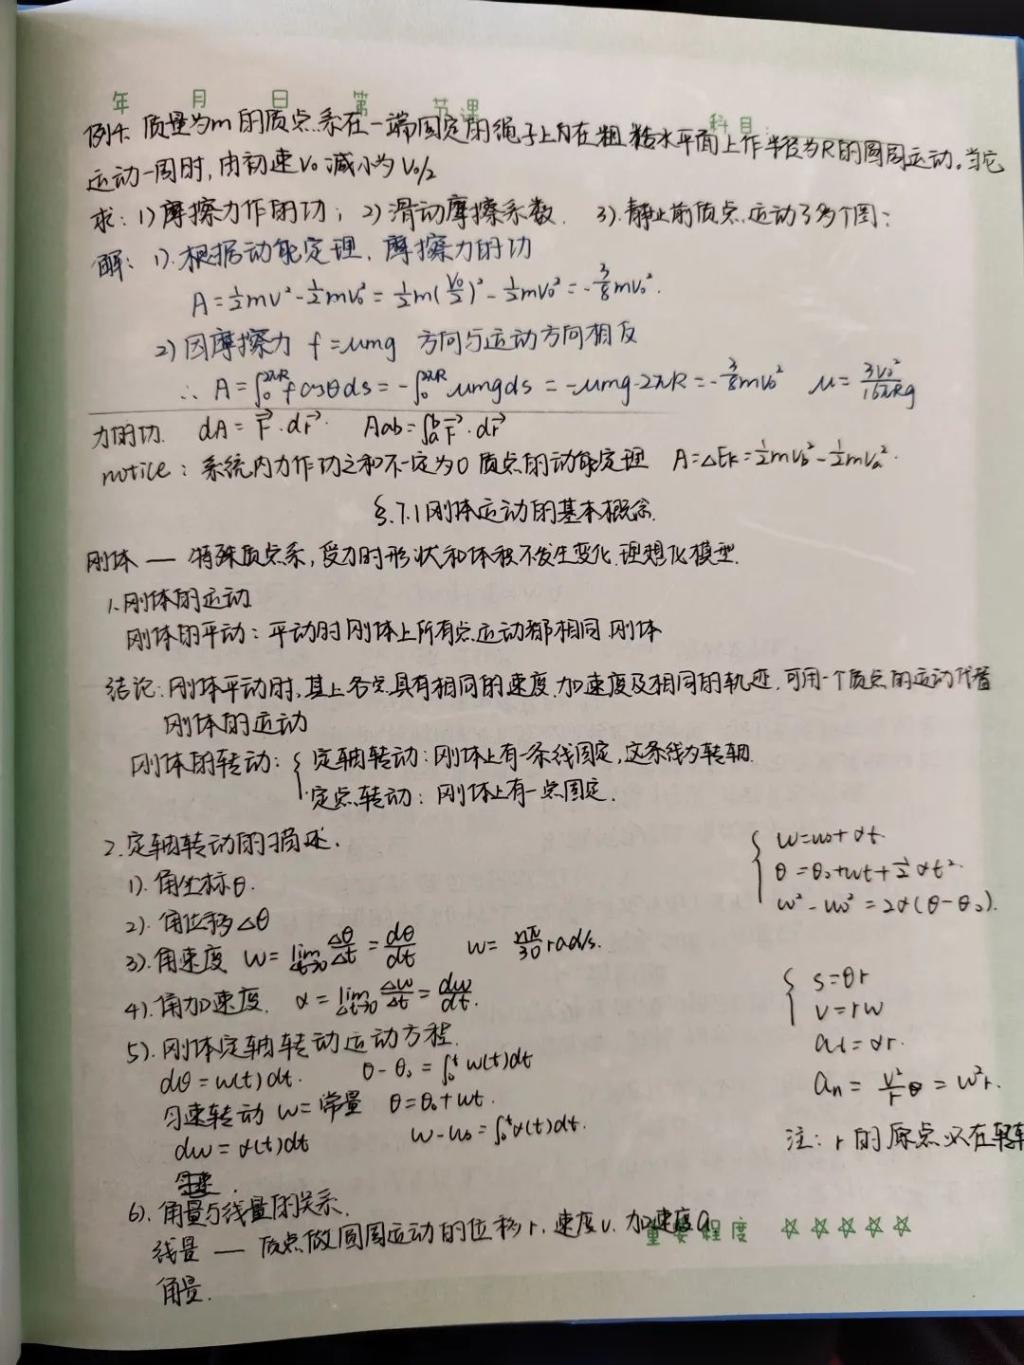 年 月 日 第 节课 科目:
例4: 质量为m的质点系在一端固定的绳子上且在粗糙水平面上作半径为R的圆周运动。当它
运动一周时,由初速v₀减小为v₀/2
求:1)摩擦力作的功;2)滑动摩擦系数. 3)静止前质点运动了多少圈:
解:1).根据动能定理,摩擦力的功
A=½mv²-½mv₀²=½m(v₀/2)²-½mv₀²=-3/8mv₀².
2)因摩擦力 f=μmg 方向与运动方向相反
∴ A=∫₀²πR f cosθds=-∫₀²πR μmgds=-μmg·2πR=-3/8mv₀² μ=3v₀²/16πRg
力的功. dA=F⃗·dr⃗ Aab=∫ₐᵇF⃗·dr⃗
notice:系统内力作功之和不一定为0 质点的动能定理 A=ΔEk=½mv_b²-½mv_a².
§.7.1刚体运动的基本概念.
刚体 — 特殊质点系,受力时形状和体积不发生变化.理想化模型.
1.刚体的运动
刚体的平动:平动时刚体上所有点运动都相同 刚体
结论:刚体平动时,其上各点具有相同的速度,加速度及相同的轨迹,可用一个质点的运动代替
刚体的运动
刚体的转动:{ 定轴转动:刚体上有一条线固定,这条线为转轴.
定点转动:刚体上有一点固定.
2.定轴转动的描述.
1).角坐标θ.
2).角位移Δθ
3).角速度 ω=lim Δt→0 Δθ/Δt=dθ/dt ω=nπ/30 rad/s.
4).角加速度. α=lim Δt→0 Δω/Δt=dω/dt.
5).刚体定轴转动运动方程.
dθ=ω(t)dt. θ-θ₀=∫₀ᵗω(t)dt
匀速转动 ω=常量 θ=θ₀+ωt.
dω=α(t)dt ω-ω₀=∫₀ᵗα(t)dt.
6).角量与线量的关系.
线量 — 质点做圆周运动的位移r,速度v.加速度a
角量.
{ ω=ω₀+αt
θ=θ₀+ωt+½αt².
ω²-ω₀²=2α(θ-θ₀).
{ s=θr
v=rω
at=αr.
an=v²/r=ω²r.
注:r的原点必在转轴
重要程度 ☆☆☆☆☆